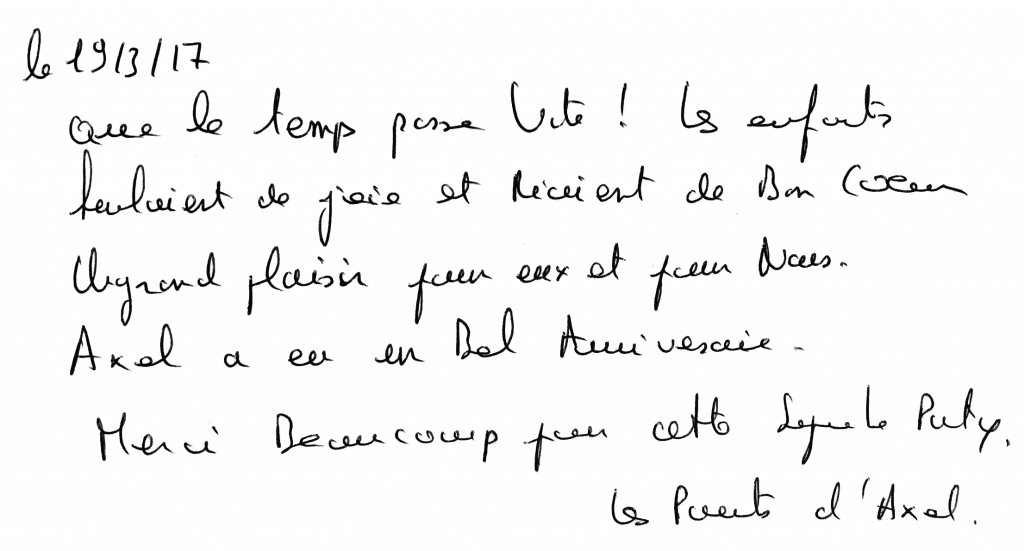 le 19/3/17
Que le temp passe vite ! Les enfants
hurlaient de joie et riaient de Bon Coeur
Un grand plaisir pour eux et pour Nous.
Axel a eu un Bel Anniversaire.
Merci Beaucoup pour cette Superbe Party.
Les Parents d'Axel.